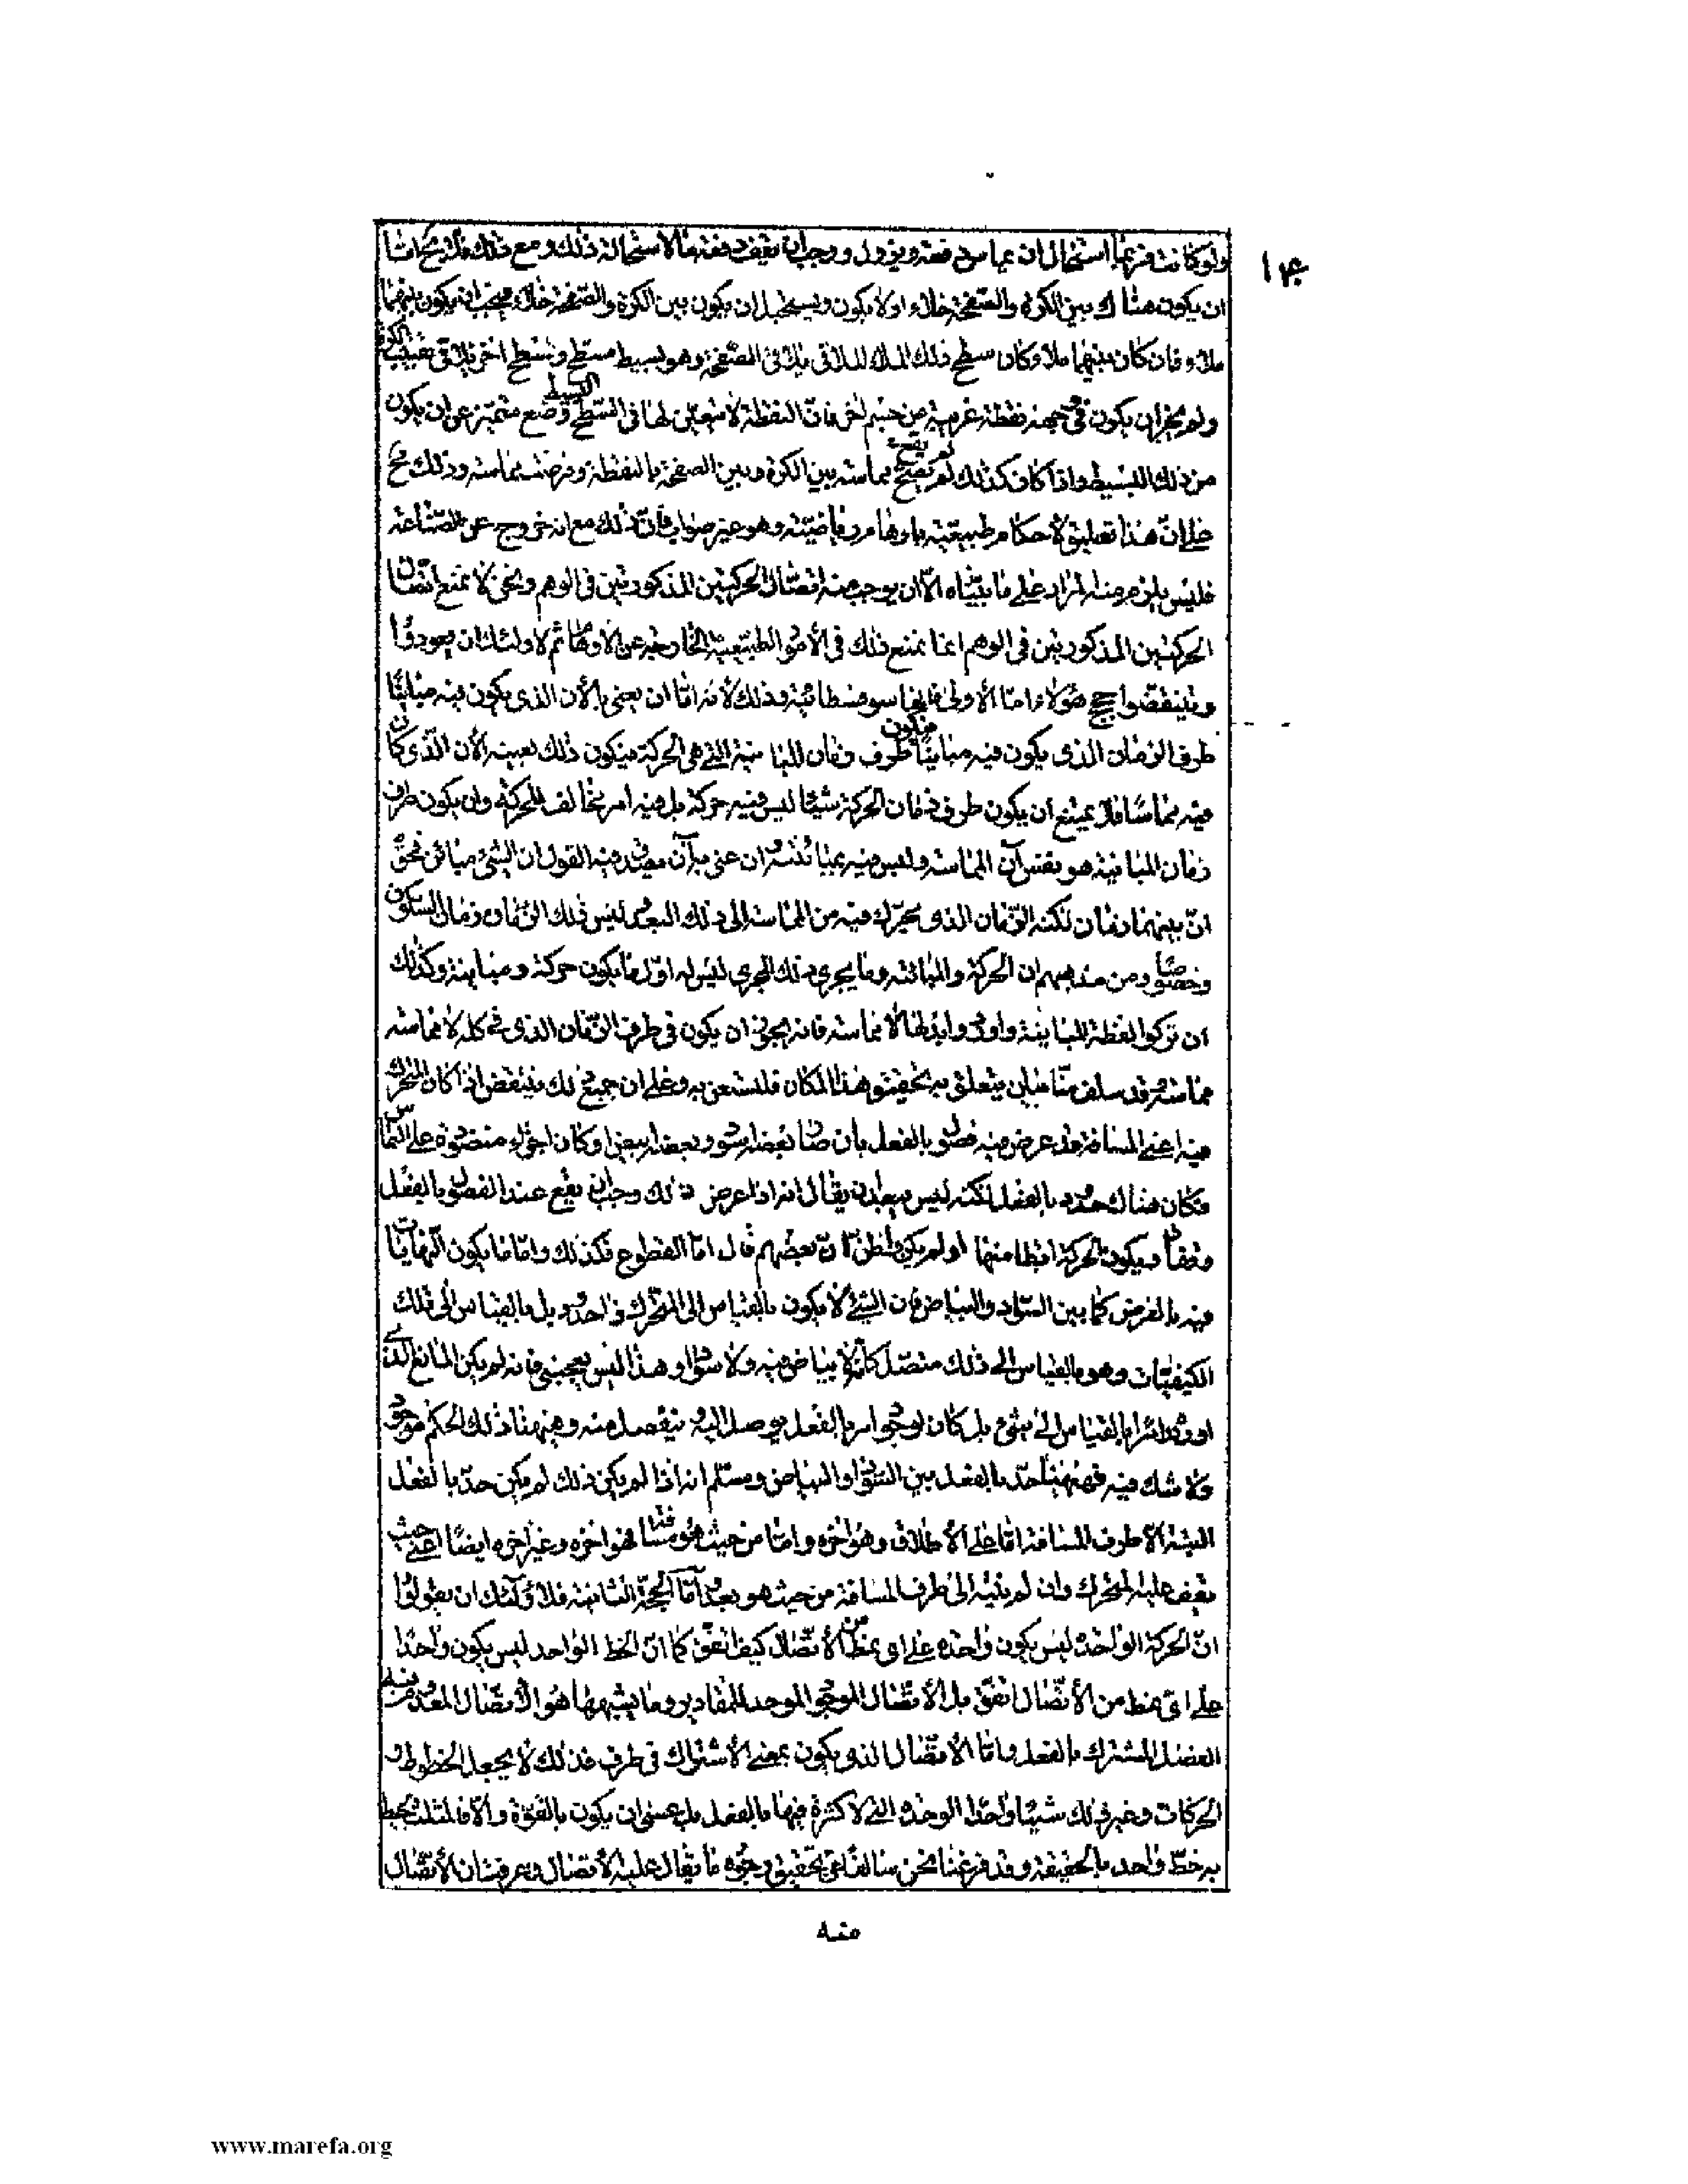 ١٣٤
ولو كانت فربما استحال ان يماس دفعة ويزول ووجب ان تقف دفعتها لاستحالة ذلك ومع ذلك فلا يخ هناك
ان يكون هناك بين الكرة والصفحة خلاء او لا يكون ويستحيل ان يكون بين الكرة والصفحة خلاء فيجب ان يكون بينهما
ملاء فان كان بينهما ملاء كان سطح ذلك الملاء الملاقى يلاقى الصفحة وهو بسيط مسطح وسطح اخر يلاقى تقبيب الكرة
ولم يجز ان يكون فى وجهه نقطة غريبة من جسم اخر فان النقطة لا يتعين لها فى السطح البسيط وضع متميز عن ان يكون
من ذلك البسيط واذا كان كذلك لم يصح لم يقع مماسة بين الكرة وبين الصفحة بالنقطة وفرضت مماسة وذلك مح
على ان هذا تعليق لأحكام طبيعية باوهام رياضية وهو غير صواب فان ذلك مع انه خروج عن الصناعة
فليس يلزم منه المراد على ما بيناه الا ان يوجب منه اتصال الحركتين المذكورتين فى الوهم ونحن لا نمنع اتصال
الحركتين المذكورتين فى الوهم انما نمنع ذلك فى الأمور الطبيعية الخارجة عن الاوهام ثم لاولئك ان يعودوا
وينقضوا حجج هؤلاء اما الأولى فانها سوفسطائية وذلك لأنه اما ان يعنى بالأن الذى يكون فيه مباينا
طرف الزمان الذى يكون فيه مباينا فيكون طرف زمان المباينة التى هى الحركة فيكون ذلك بعينه الأن الذى كان
فيه مماسا فلا يمتنع ان يكون طرف زمان الحركة شيئا ليس فيه حركة بل فيه امر مخالف للحركة وان يكون طرف
زمان المباينة هو نفس آن المماسة وليس فيه مباينة وان عنى به آن يصدق فيه القول ان الشئ مباين فحق
ان بينهما زمان لكنه الزمان الذى يتحرك فيه من المماسة الى ذلك البعد ليس ذلك الزمان زمان السكون
وخصوصا ومن مذهبهم ان الحركة والمباينة وما يجرى ذلك المجرى ليس له اول ما يكون حركة ومباينة وكذلك
ان تركوا لفظة المباينة واوردوا بدلها لا مماسة فانه يجوز ان يكون فى طرف الزمان الذى فى كله لا مماسة
مماسة وقد سلف منا ما يتعلق بتحقيق هذا المكان فلنستعن به وعلى ان جميع ذلك ينتقض اذا كان المتحرك
فيه اعنى المسافة قد عرض فيه فصول بالفعل بان صار بعضه اسود وبعضه ابيض او كان اجزاء منضودة على التماس
فكان هناك حدود بالفعل لكنه ليس ببعيد ان يقال انه اذا عرض ذلك وجب ان يقع عند الفصول بالفعل
وقفات ويكون الحركة ابطا منها لو لم يكن واظن ان بعضهم قال اما القطوع فكذلك واما ما يكون النهايات
فيه بالعرض كما بين السواد والبياض فان الشئ لا يكون بالقياس الى المتحرك ذا حدود بل بالقياس الى تلك
الكيفيات وهو بالقياس الى ذلك متصل كأنه لا بياض فيه ولا سواد وهذا ليس يعجبنى فانه لم يكن المانع الذى
اورد امرا بالقياس الى شئ بل كان لوجود امر بالفعل يوصل اليه وينفصل منه وههنا ذلك الحكم موجود
ولا شك فيه فههنا حد بالفعل بين السواد والبياض ومسلم انه اذا لم يكن ذلك لم يكن حد بالفعل
البتة الا طرف المسافة اما على الأطلاق وهو آخره واما من حيث هو مسافة فهو آخره وغير آخره ايضا اعنى حيث
يقف عليه المتحرك وان لم ينته الى طرف المسافة من حيث هو بعد واما الحجة الثانية فلاولئك ان يقولوا
ان الحركة الواحدة ليس يكون واحدة على اى نمط من الأتصال كيف اتفق كما ان الخط الواحد ليس يكون واحدا
على اى نمط من الأتصال اتفق بل الأتصال الموجود الموحد للمقادير وما يشبهها هو الأتصال المعدوم فيه
الفصل المشترك بالفعل واما الأتصال الذى يكون بمعنى الأشتراك فى طرف فذلك لا يجعل الخطوط و
الحركات وغير ذلك شيئا واحدا الوحدة التى لا كثرة فيها بالفعل بل عسى ان يكون بالقوة والا فالمثلث يحيط
به خط واحد بالحقيقة وقد فرغنا نحن سالفا عن تحقيق وجوه ما يقال عليه الأتصال وعرفت ان الأتصال
منه
www.marefa.org